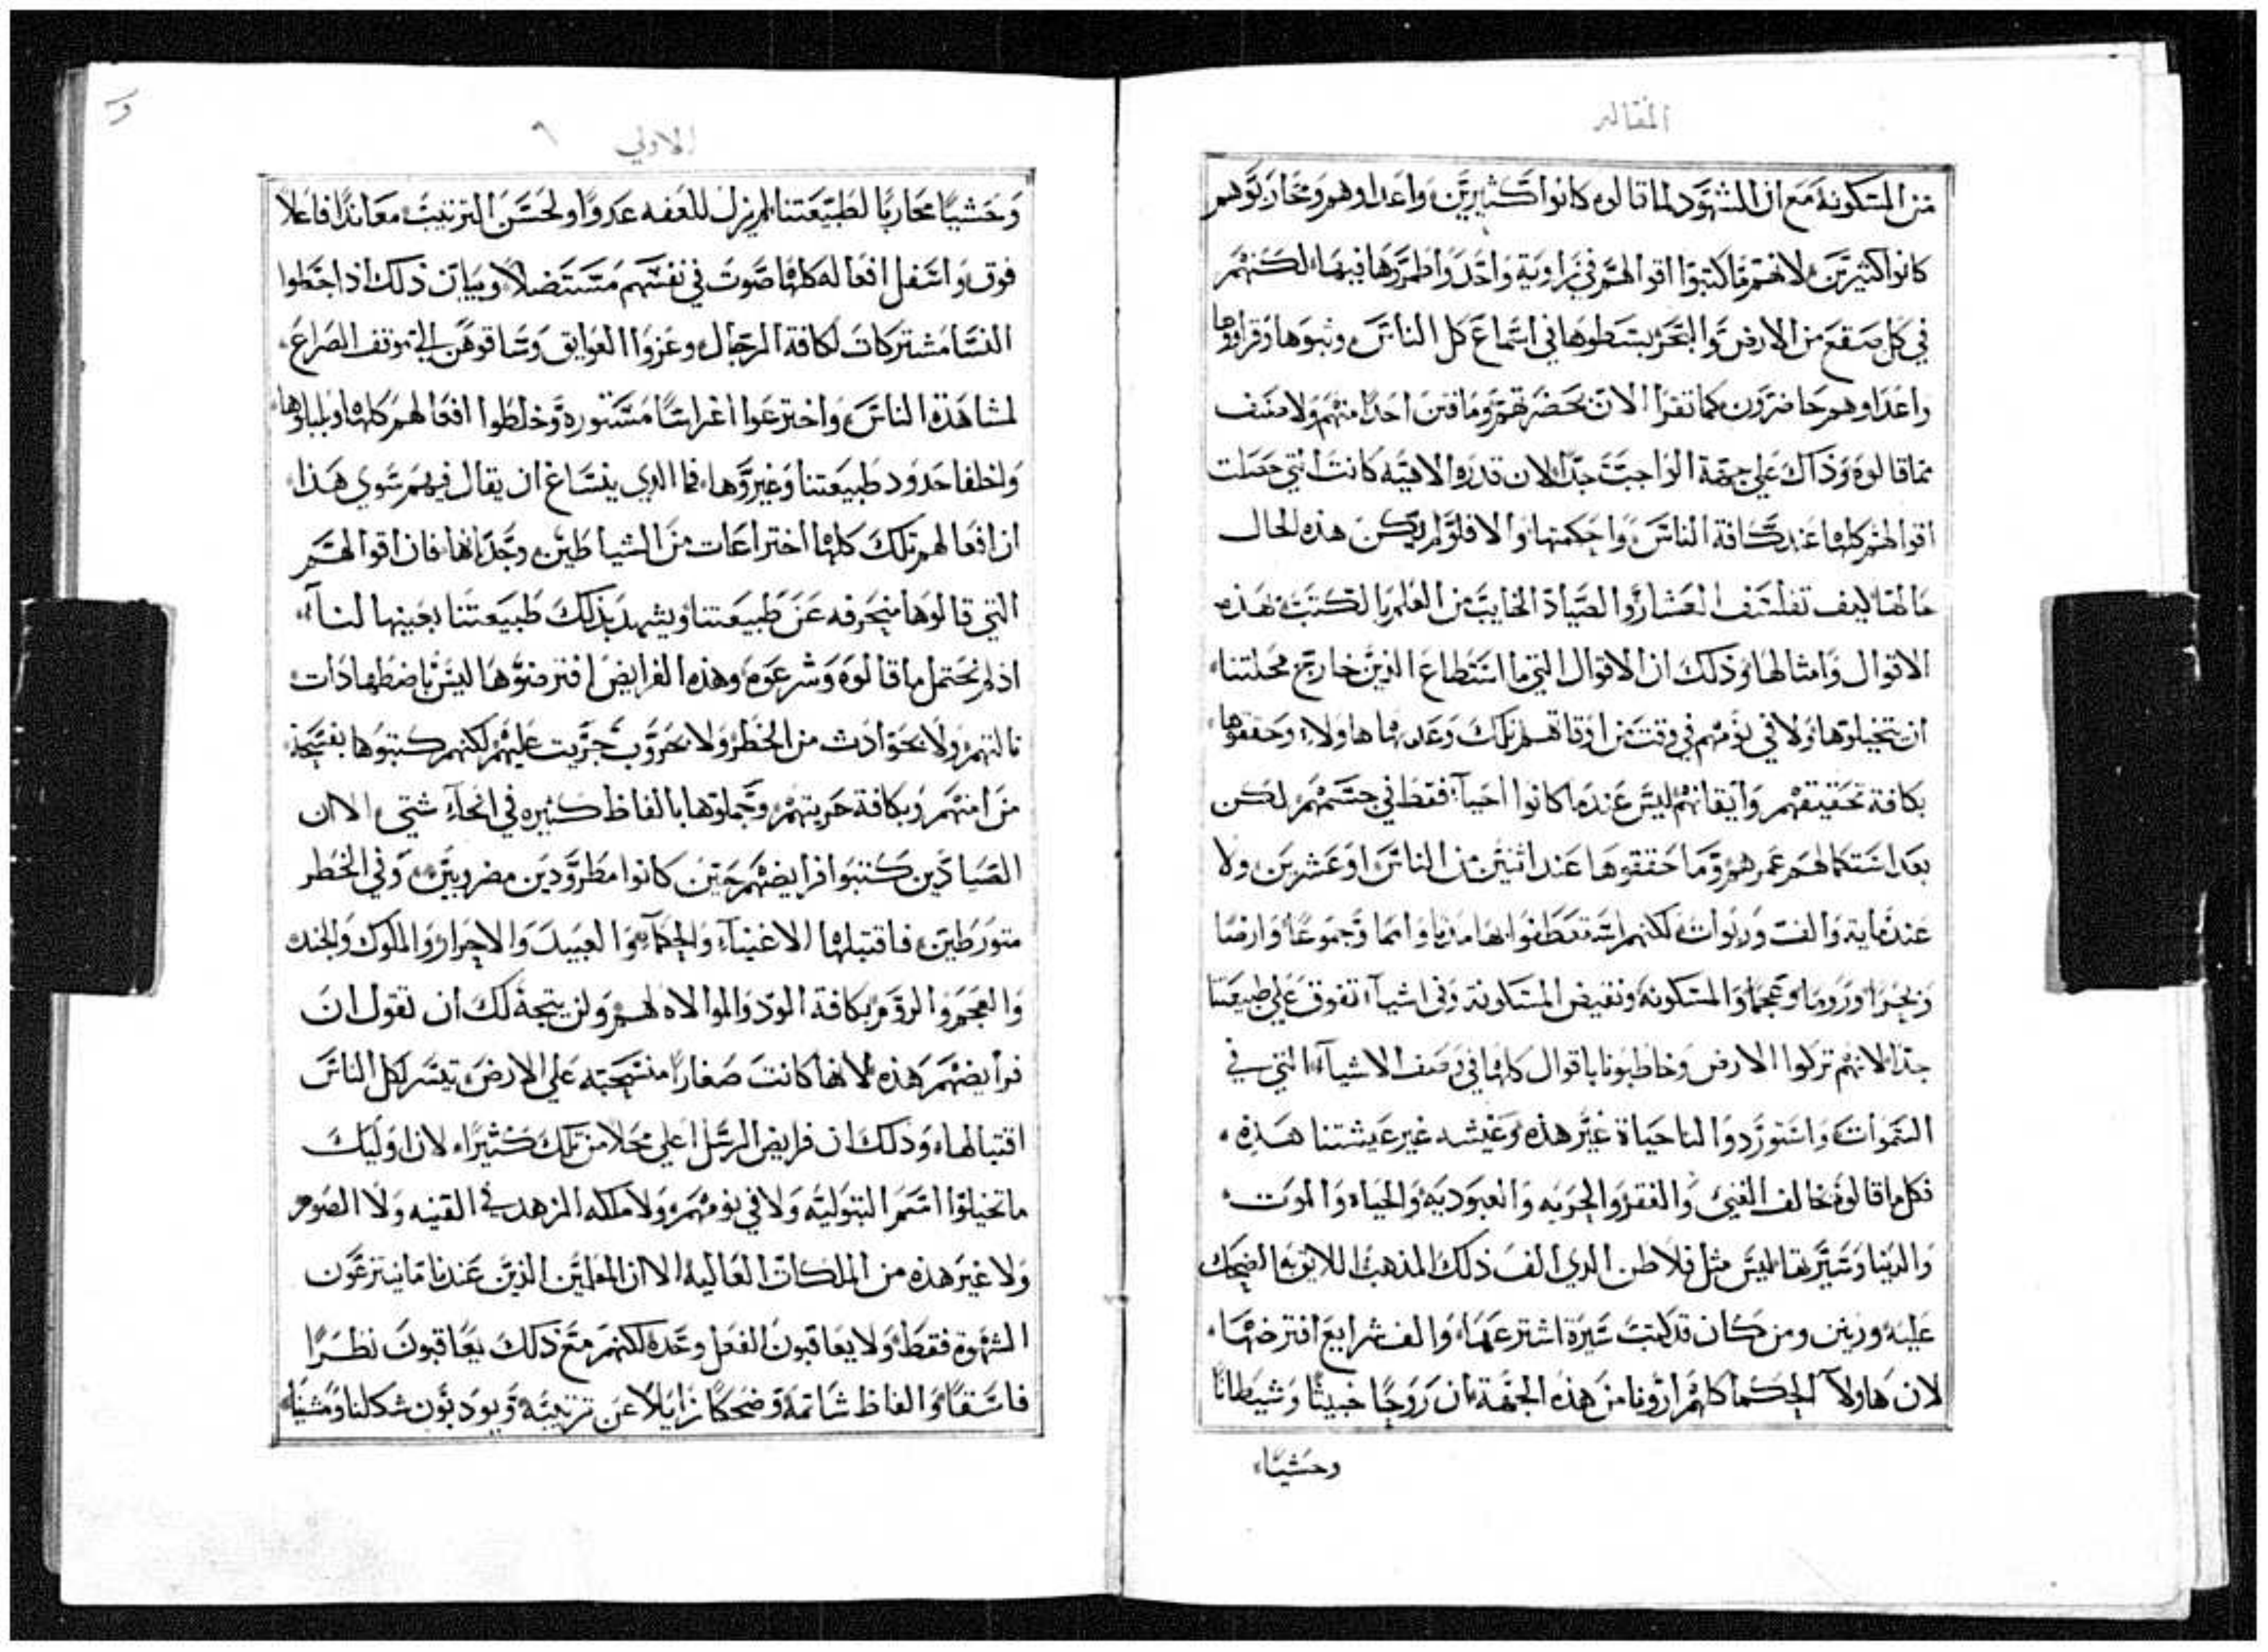 المقاله
من المسكونة مع ان الشهود لما قالوه كانوا كثيرين واعداوهم ومحاربوهم
كانوا كثيرين لانهم ما كتبوا اقوالهم في زاوية واحده وطمروها فيها لكنهم
في كل صقع من الارض والبحر بسطوها في استماع كل الناس وثبوها وقراوها
واعداوهم حاضرون كما تقرا الان بحضرتهم وما فتن احدًا منهم ولا صنف
مما قالوه وذاك علي جهة الواجب جدًا لان قدره الاهيه كانت التي حصلت
اقوالهم كلها عند كافة الناس واحكمتها والا فلو لم يكن هذه الحال
حالها كيف تفلسف العشار والصياد الخايب من العلم بالكتب بهذه
الاقوال وامثالها وذلك ان الاقوال التي ما استطاع الذين خارج محلتنا
ان يتخيلوها ولا في نومهم في وقت من اوقاتهم تلك وعد بها هاولاء وحققوها
بكافة تحقيقهم وايقانهم ليس عندما كانوا احيآ فقط في جسمهم لكن
بعد استكمالهم عمرهم وما حققوها عند اثنين من الناس او عشرين ولا
عند مايه والف وربوات لكنهم استعطفوا بها مدنا وامما وجموعًا وارضًا
وبحرًا وروما وعجما والمسكونه ونقيض المسكونة وفي اشيآ تفوق علي طبيعتنا
جدًا لانهم تركوا الارض وخاطبونا باقوال كلها في وصف الاشيآ التي في
السموات واستوردوا لنا حياة غير هذه وعيشه غير عيشتنا هذه
فكل ما قالوه خالف الغني والفقر والحريه والعبوديه والحياه والموت
والدنيا وسيرتها ليس مثل فلاطن الدي الف ذلك المذهب اللايق بها الضحك
عليه وزينن ومن كان قد كتب سيرة اشترعها والف شرايع افترضها
لان هاولآ الحكما كلهم ارونا من هذه الجهة ان روحًا خبيثًا وشيطانًا
وحشيًا
الاولي ٩
وحشيًا محاربًا لطبيعتنا لم يزل للعفه عدوًا ولحسن الترتيب معاندًا فاعلاً
فوق واسفل افعاله كلها صوت في نفسهم مستنصلاً وبيان ذلك اذا جعلوا
النسا مشتركات لكافة الرجال وعزوا العوايق وساقوهن الي موقف الصراع
لمشاهدة الناس واخترعوا اعراسًا مستوره وخلطوا افعالهم كلها وبلبلوها
واخلفا حدود طبيعتنا وغيروها فما الدي ينساغ ان يقال فيهم سوي هذا
ان افعالهم تلك كلها اختراعات من الشياطين وجدانها فان اقوالهم
التي قالوها منحرفه عن طبيعتنا ويشهد بذلك طبيعتنا بعينها لنآ
اذ لم نحتمل ما قالوه وشرعوه وهذه الفرايض افترضوها ليس باضطهادات
نالتهم ولا بحوادث من الخطر ولا بحروب جريت عليهم لكنهم كتبوها بفسحة
من امنهم وبكافة حريتهم وجملوها بالفاظ كثيره في انحاء شتي الا ان
الصيادين كتبوا فرايضهم حين كانوا مطرودين مضروبين وفي الخطر
متورطين فاقتبلها الاغنيآ والحكمآ والعبيد والاحرار والملوك والجند
والعجم والروم بكافة المود والموالاه لهم ولن يتجه لك ان تقول ان
فرايضهم هذه لانها كانت صغارًا منسحبه علي الارض تيسر لكل الناس
اقتبالها وذلك ان فرايض الرسل اعلي محلا من تلك كثيرًا لان اوليك
ما تخيلوا اسم البتوليه ولا في نومهم ولا ملكه الزهد في القنيه ولا الصوم
ولا غير هذه من الملكات العاليه الا ان المعلمين الذين عندنا ما ينتزعون
الشهوة فقط ولا يعاقبون الفعل وحده لكنهم مع ذلك يعاقبون نظرًا
فاسقًا والفاظ شاتمة وضحكًا زايلا عن ترتيبه ويودبون شكلنا ومشينا